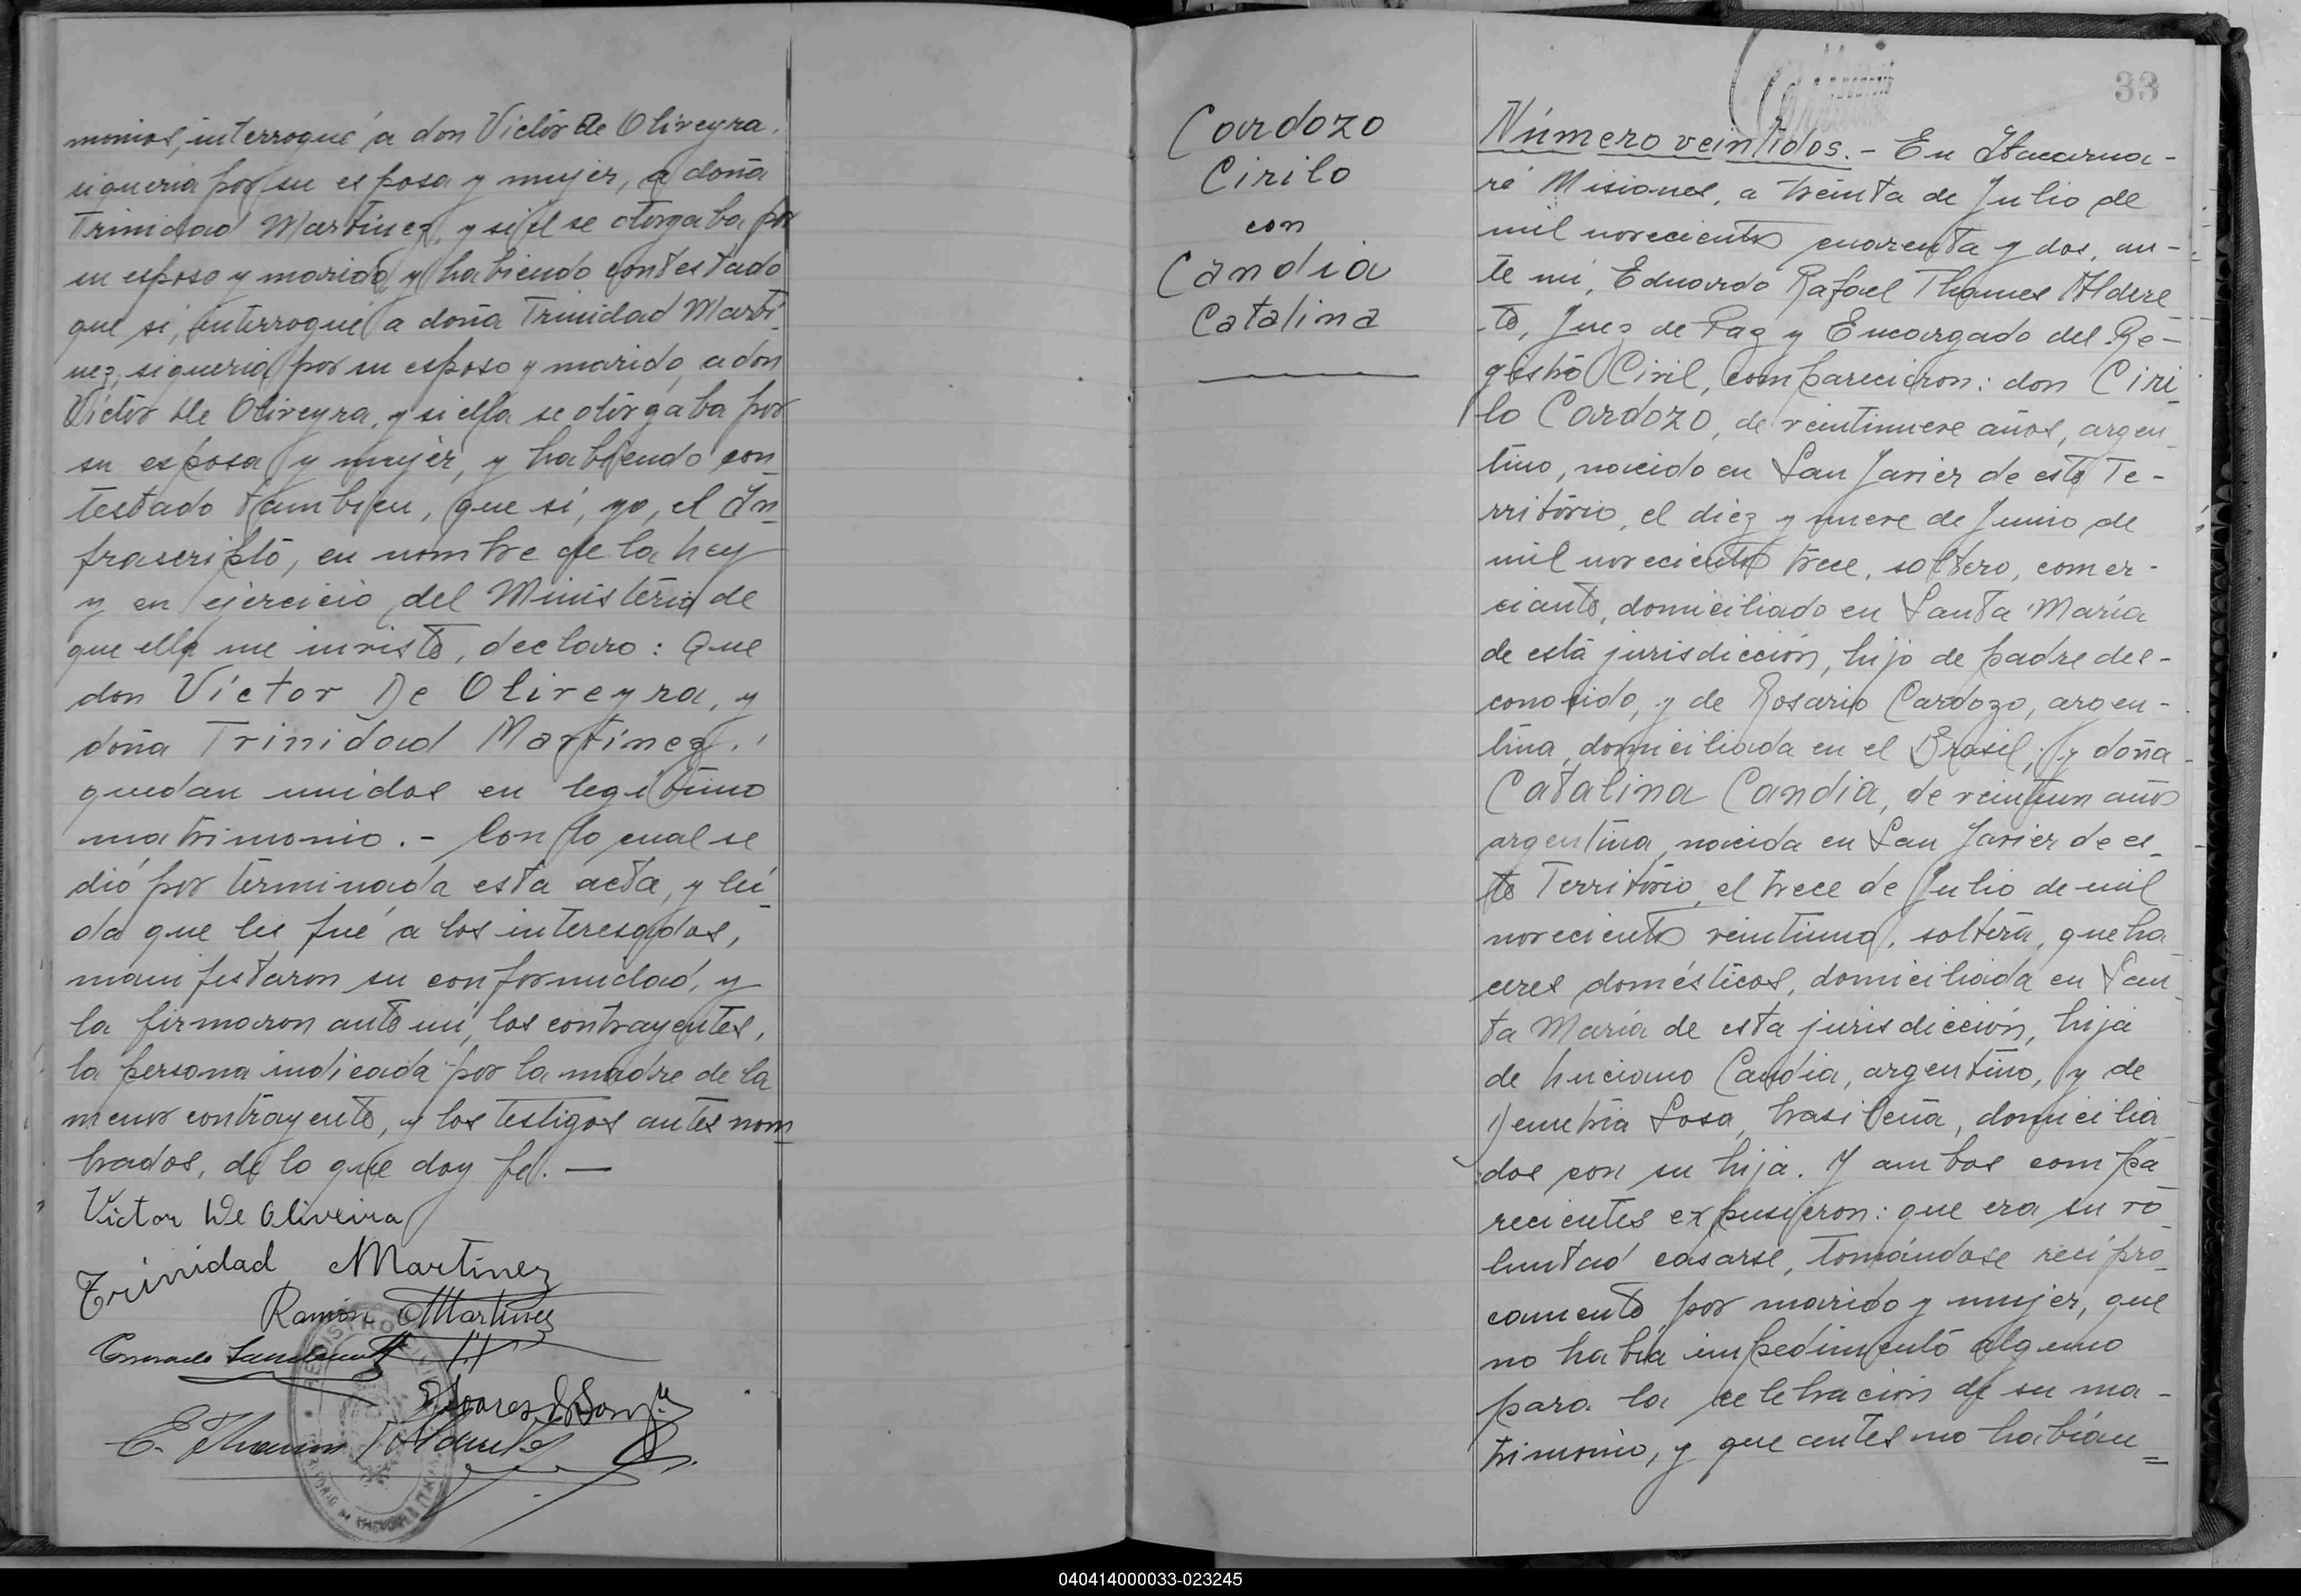 monios, interrogué a don Víctor De Olireyra,
si quería por su esposa y mujer, a doña
Trinidad Martínez, y si él se otorgaba por
su esposo y marido, y habiendo contestado
que si, interrogué a doña Trinidad Martí-
nez, si quería por su esposo y marido, a don
Víctor De Olireyra, y si ella se otorgaba por
su esposa y mujer, y habiendo con-
testado tambien, que si, yo, el In-
frascripto, en nombre de la Ley
y en ejercicio del Ministerio de
que ella me inviste, declaro: Que
don Víctor De Olireyra, y
doña Trinidad Martínez,
quedan unidos en legítimo
matrimonio.- Con lo cual se
dió por terminada esta acta, y leí-
da que les fué a los interesados,
manifestaron su conformidad, y
la firmaron ante mí, los contrayentes,
la persona indicada por la madre de la
menor contrayente, y los testigos antes nom-
brados, de lo que doy fe. —
Victor De Oliveira
Trinidad Martinez
Ramón Martinez
E. Thames Alderete
REGISTRO CIVIL
Cardozo
Cirilo
con
Candia
Catalina
33
Número veintidos.- En Itacarua-
ré Misiones, a treinta de Julio de
mil novecientos cuarenta y dos, an-
te mi, Eduardo Rafael Thames Aldere-
te, Juez de Paz y Encargado del Re-
gistro Civil, comparecieron: don Ciri-
lo Cardozo, de veintinueve años, argen-
tino, nacido en San Javier de este Te-
rritorio, el diez y nueve de Junio de
mil novecientos trece, soltero, comer-
ciante, domiciliado en Santa María
de esta jurisdicción, hijo de padre des-
conocido, y de Rosario Cardozo, argen-
tina, domiciliada en el Brasil; y doña
Catalina Candia, de veintiun años
argentina, nacida en San Javier de es-
te Territorio, el trece de Julio de mil
novecientos veintiuno, soltera, queha-
ceres domésticos, domiciliada en San-
ta María de esta jurisdicción, hija
de Luciano Candia, argentino, y de
Demetria Sosa, brasileña, domicilia-
dos con su hija. Y ambos compa-
recientes expusieron: que era su vo-
luntad casarse, tomándose recípro-
camente, por marido y mujer, que
no había impedimento alguno
para la celebración de su ma-
trimonio, y que antes no habían
040414000033-023245